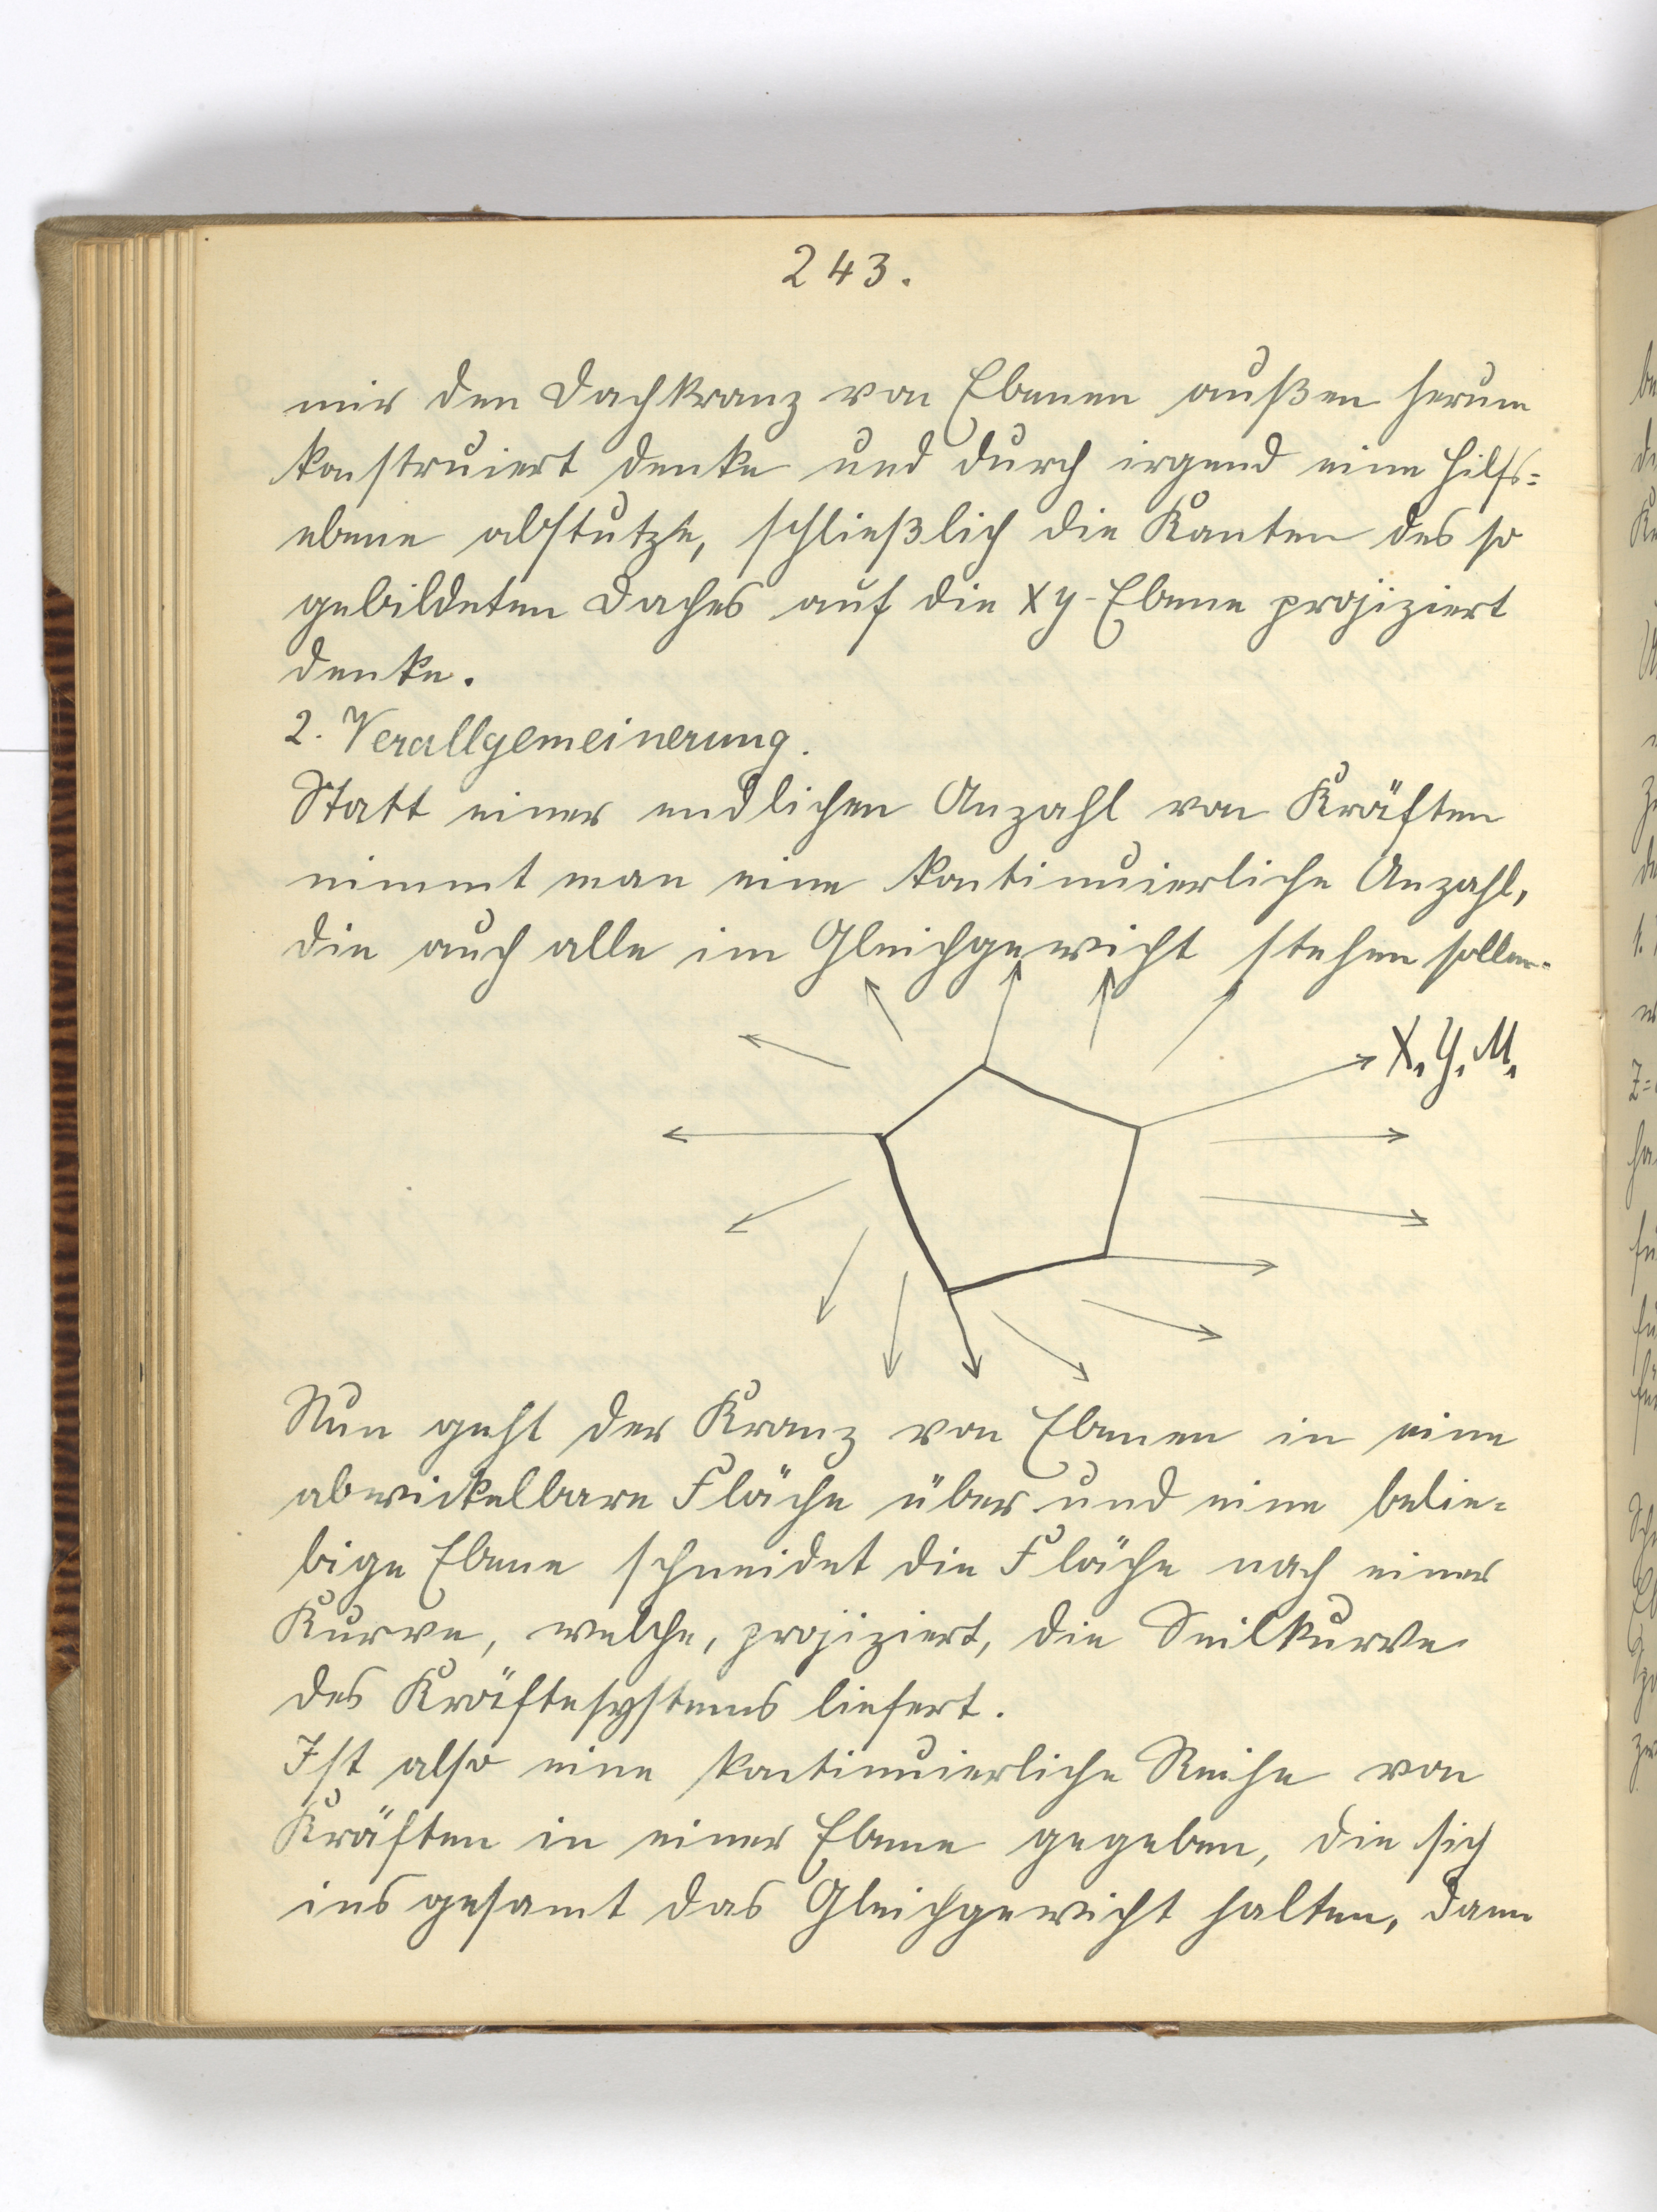 243.
mir den Dachkranz von Ebenen außen herum
konstruiert denke und durch irgend eine Hilfs=
ebene abstutze, schließlich die Kanten des so
gebildeten Daches auf die xy-Ebene projiziert
denke.
2. Verallgemeinerung.
Statt einer endlichen Anzahl von Kräften
nimmt man eine kontinuierliche Anzahl,
die auch alle im Gleichgewicht stehen sollen.
X, Y, M,
Nun geht der Kranz von Ebenen in eine
abwickelbare Fläche über und eine belie=
bige Ebene schneidet die Fläche nach einer
Kurve, welche, projiziert, die Seilkurve
des Kräftesystems liefert.
Ist also eine kontinuierliche Reihe von
Kräften in einer Ebene gegeben, die sich
insgesamt das Gleichgewicht halten, dann